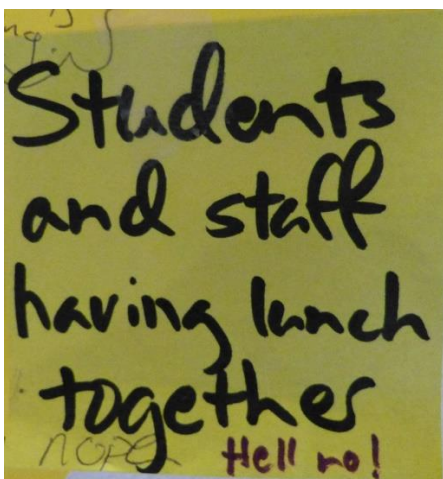 Students
and staff
having lunch
together
nope
Hell no!